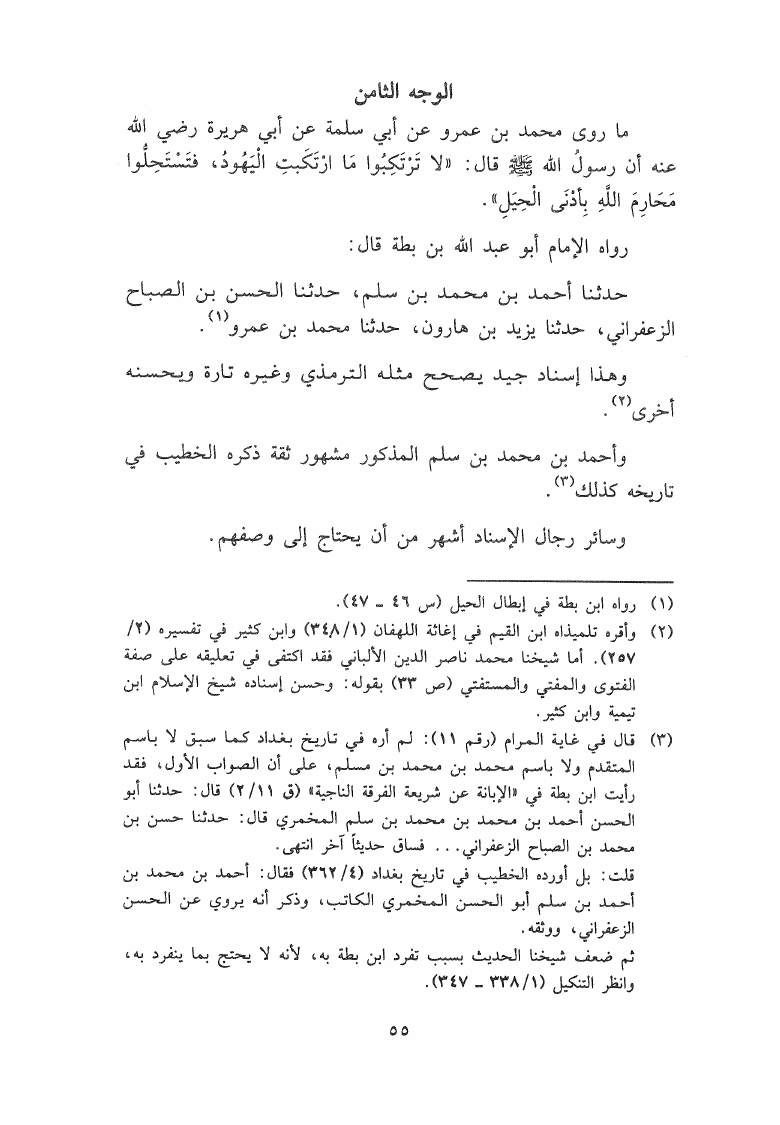 الوجه الثامن
ما روى محمد بن عمرو عن أبي سلمة عن أبي هريرة رضي الله
عنه أن رسولُ الله ﷺ قال: «لا تَرْتَكِبُوا مَا ارْتَكَبتِ الْيَهُودُ، فتَسْتَحِلُّوا
مَحَارِمَ اللَّهِ بِأَدْنَى الْحِيَلِ».
رواه الإمام أبو عبد الله بن بطة قال:
حدثنا أحمد بن محمد بن سلم، حدثنا الحسن بن الصباح
الزعفراني، حدثنا يزيد بن هارون، حدثنا محمد بن عمرو(١).
وهذا إسناد جيد يصحح مثله الترمذي وغيره تارة ويحسنه
أخرى(٢).
وأحمد بن محمد بن سلم المذكور مشهور ثقة ذكره الخطيب في
تاريخه كذلك(٣).
وسائر رجال الإسناد أشهر من أن يحتاج إلى وصفهم.
(١) رواه ابن بطة في إبطال الحيل (س ٤٦ ـ ٤٧).
(٢) وأقره تلميذاه ابن القيم في إغاثة اللهفان (٣٤٨/١) وابن كثير في تفسيره (٢/
٢٥٧). أما شيخنا محمد ناصر الدين الألباني فقد اكتفى في تعليقه على صفة
الفتوى والمفتي والمستفتي (ص ٣٣) بقوله: وحسن إسناده شيخ الإسلام ابن
تيمية وابن كثير.
(٣) قال في غاية المرام (رقم ١١): لم أره في تاريخ بغداد كما سبق لا باسم
المتقدم ولا باسم محمد بن محمد بن مسلم، على أن الصواب الأول، فقد
رأيت ابن بطة في «الإبانة عن شريعة الفرقة الناجية» (ق ٢/١١) قال: حدثنا أبو
الحسن أحمد بن محمد بن محمد بن سلم المخمري قال: حدثنا حسن بن
محمد بن الصباح الزعفراني... فساق حديثاً آخر انتهى.
قلت: بل أورده الخطيب في تاريخ بغداد (٣٦٢/٤) فقال: أحمد بن محمد بن
أحمد بن سلم أبو الحسن المخمري الكاتب، وذكر أنه يروي عن الحسن
الزعفراني، ووثقه.
ثم ضعف شيخنا الحديث بسبب تفرد ابن بطة به، لأنه لا يحتج بما ينفرد به،
وانظر التنكيل (٣٣٨/١ ـ ٣٤٧).
٥٥